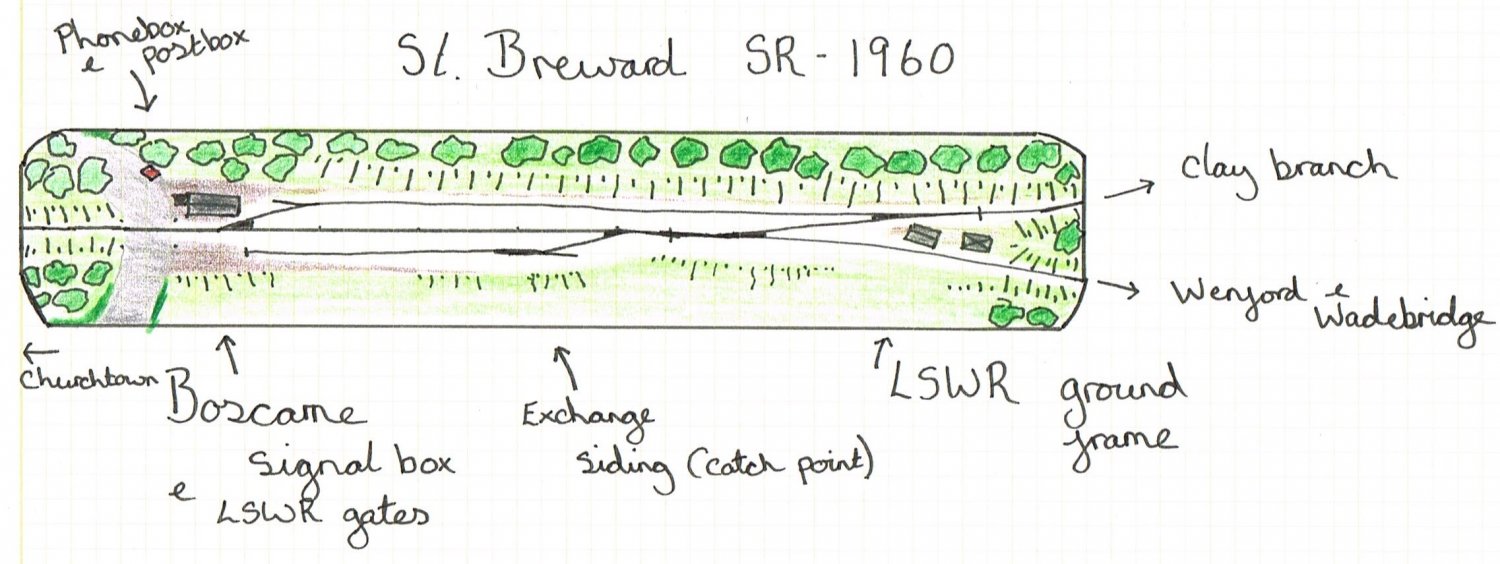 Phonebox
e postbox
St. Breward SR - 1960
Clay branch
Wenford e
Wadebridge
Churchtown
Boscarne
signal box
e LSWR gates
Exchange
siding (catch point)
LSWR ground
frame